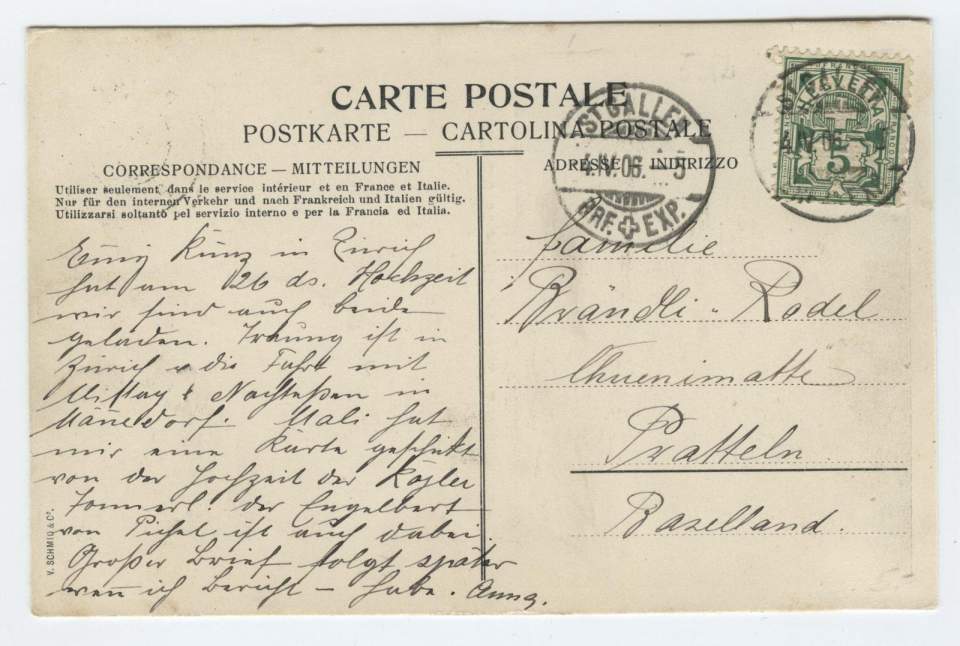 CARTE POSTALE
POSTKARTE — CARTOLINA POSTALE
CORRESPONDANCE — MITTEILUNGEN
Utiliser seulement dans le service intérieur et en France et Italie.
Nur für den internen Verkehr und nach Frankreich und Italien gültig.
Utilizzarsi soltanto pel servizio interno e per la Francia ed Italia.
Kunz in Zürich
hat am 26 ds. Hochzeit
wir sind auch beide
geladen. Trauung ist in
Zürich u die Fahrt mit
Mittag & Nachteßen in
Mali hat
mir eine Karte geschickt
von der Hochzeit der
der Engelbert
von Pichel ist auch dabei.
Großer Brief folgt später
wen̄ ich Bericht — habe. Anna.
V. SCHMID & Co.
ADRESSE — INDIRIZZO
Familie
Brändli - Rodel
Chuenimatte
Pratteln
Baselland.
ST GALLEN
4.IV.06. - 5
BRF. EXP.
HELVETIA
5
4.IV.06